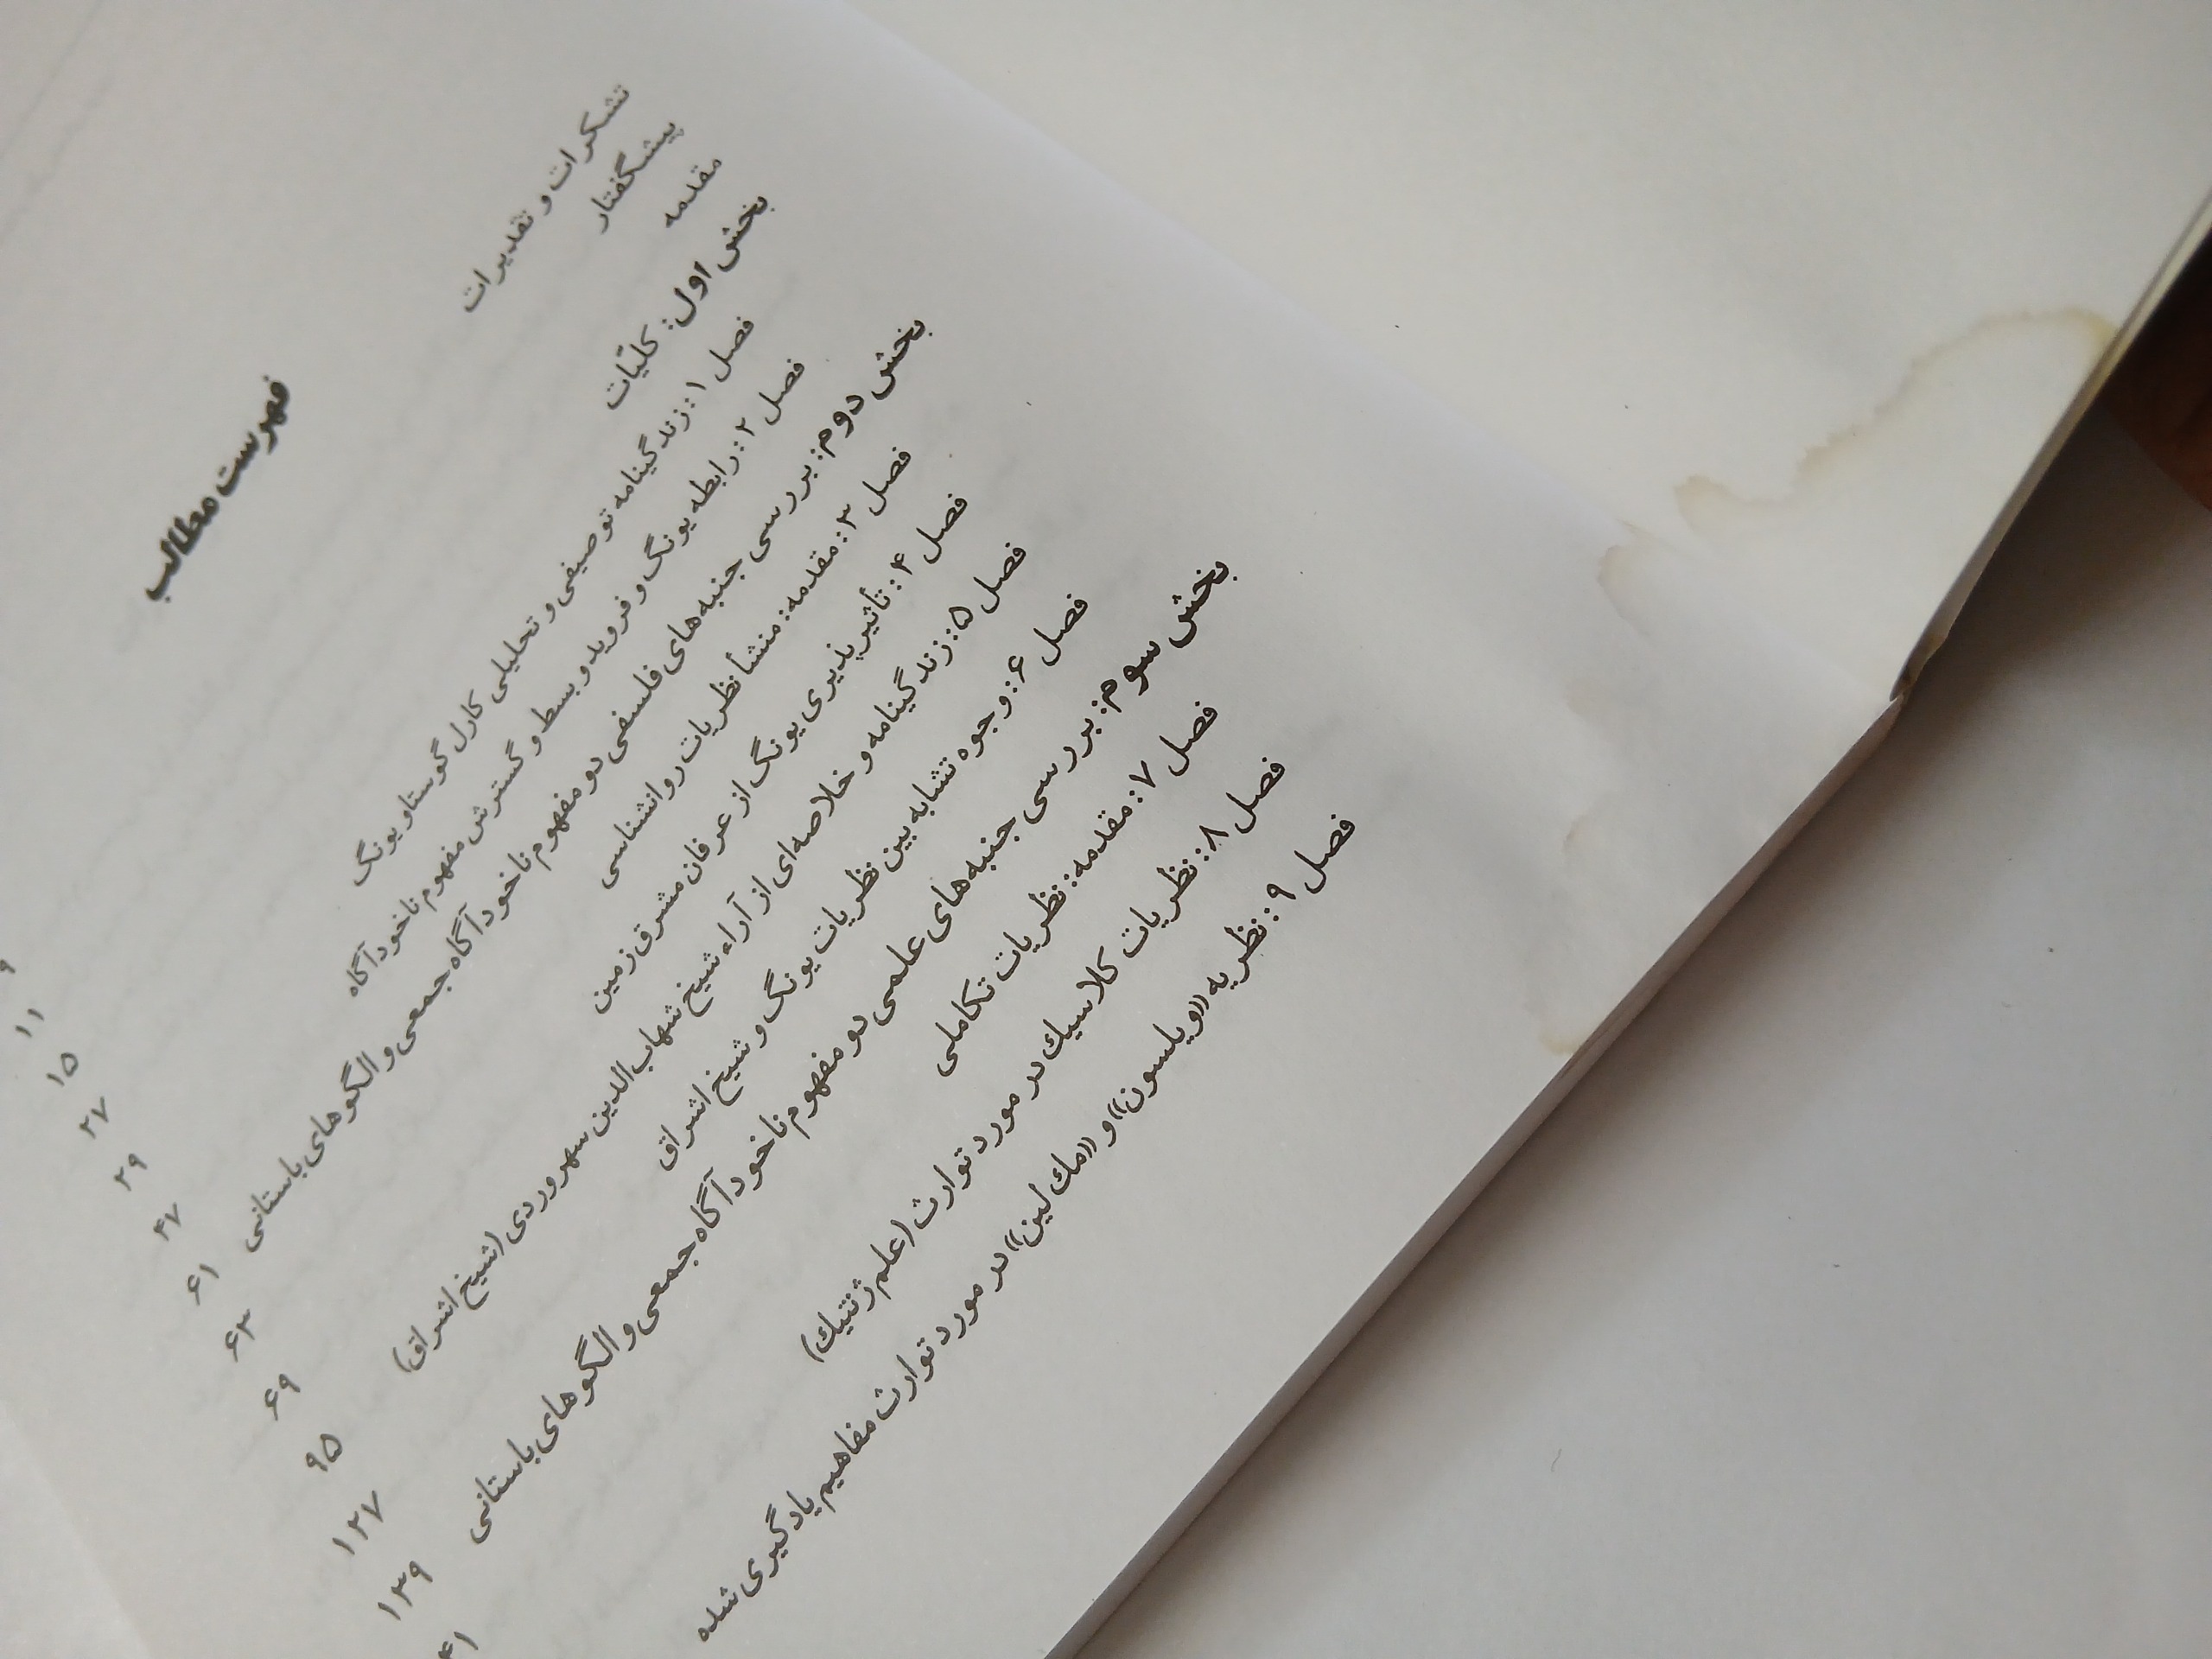 فهرست مطالب
تشکرات و تقدیرات ۹
پیشگفتار ۱۱
مقدمه ۱۵
بخش اول: کلیّات ۲۷
فصل ۱: زندگینامه توصیفی و تحلیلی کارل گوستاو یونگ ۲۹
فصل ۲: رابطه یونگ و فروید و بسط و گسترش مفهوم ناخودآگاه ۴۷
بخش دوم: بررسی جنبه‌های فلسفی دو مفهوم ناخودآگاه جمعی و الگوهای باستانی ۶۱
فصل ۳: مقدمه: منشأ نظریات روانشناسی ۶۳
فصل ۴: تأثیرپذیری یونگ از عرفان مشرق زمین ۶۹
فصل ۵: زندگینامه و خلاصه‌ای از آراء شیخ شهاب‌الدین سهروردی (شیخ اشراق) ۹۵
فصل ۶: وجوه تشابه بین نظریات یونگ و شیخ اشراق ۱۲۷
بخش سوم: بررسی جنبه‌های علمی دو مفهوم ناخودآگاه جمعی و الگوهای باستانی ۱۳۹
فصل ۷: مقدمه: نظریات تکاملی
فصل ۸: نظریات کلاسیك در مورد توارث (علم ژنتیك)
فصل ۹: نظریه «ویلسون» و «مك لین» در مورد توارث مفاهیم یادگیری شده